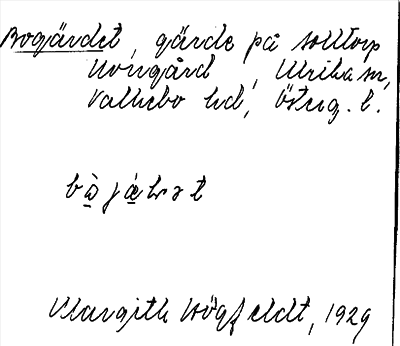 Bogärdet, gärde på Solltorp
Norrgård, Ulrika sn,
Vallebo hd, Österg. l.
bὼjὲɭət
Margith Högfeldt, 1929